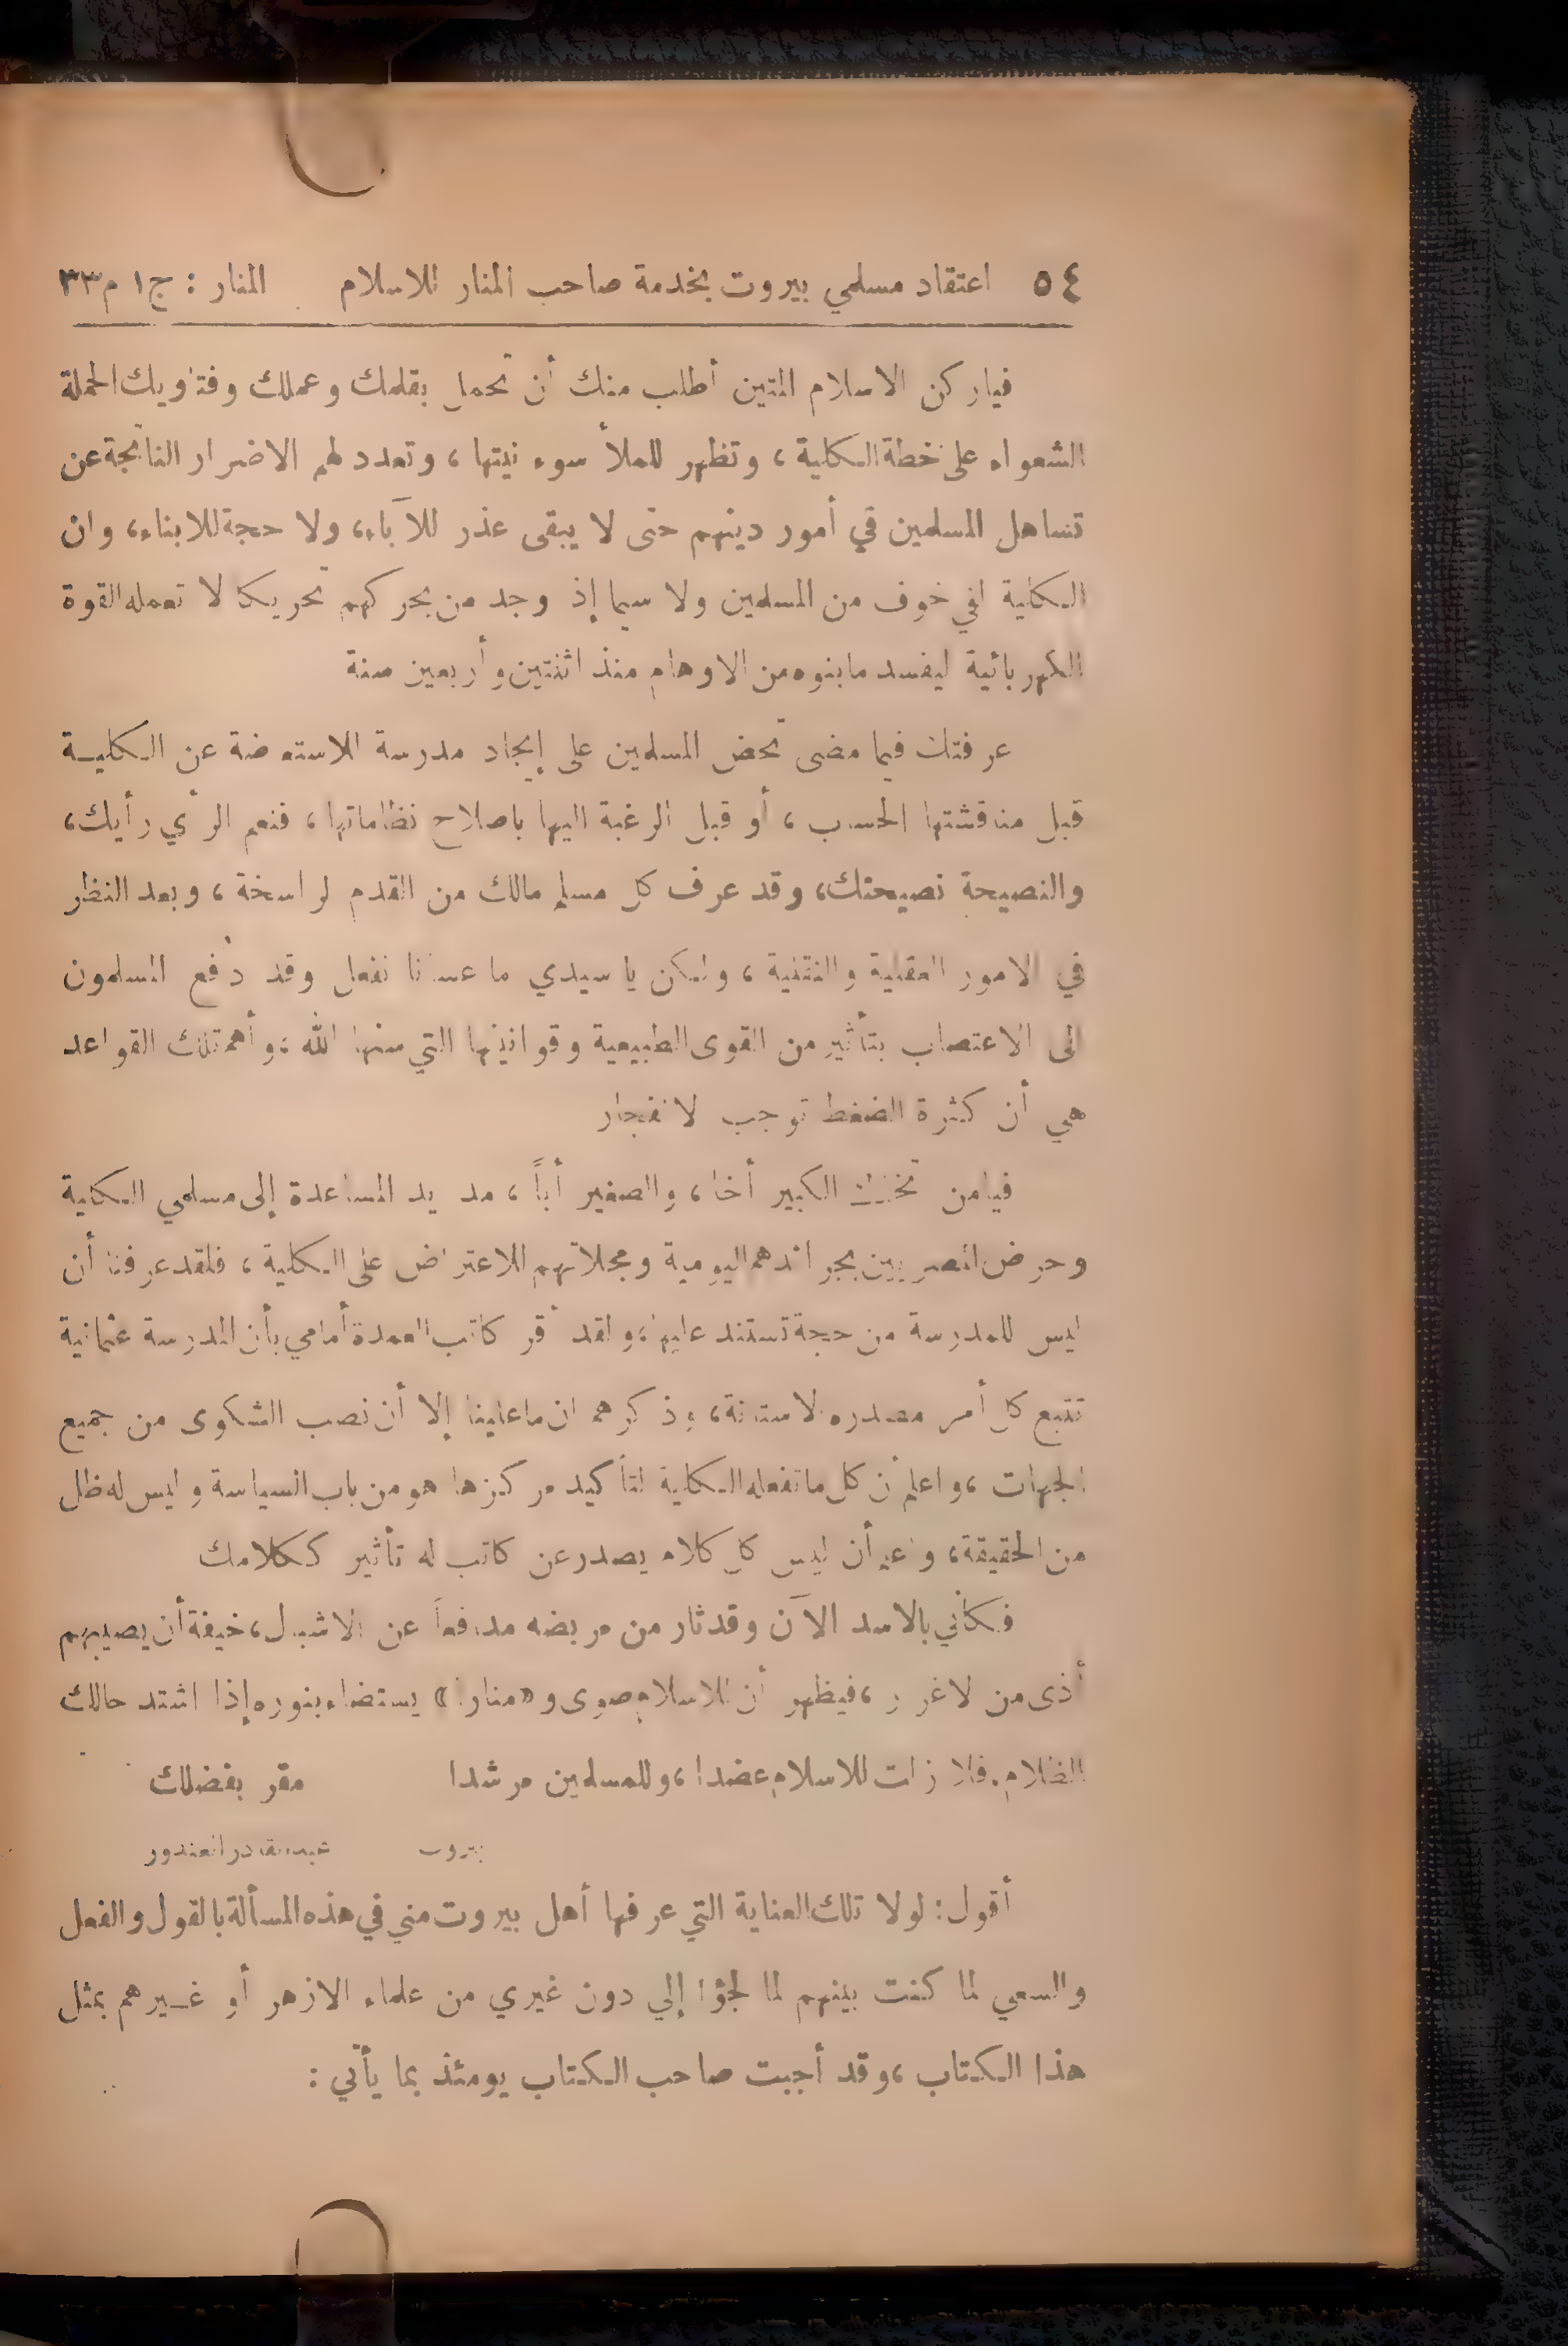 ٥٤ اعتقاد مسلمي بيروت بخدمة صاحب المنار للاسلام المنار : ج١ م٣٣
فياركن الاسلام المتين أطلب منك أن تحمل بقلمك وعملك وفتاويك الحملة
الشعواء على خطة الكلية ، وتظهر للملأ سوء نيتها ، وتعدد لهم الاضرار الناتجة عن
تساهل المسلمين في أمور دينهم حتى لا يبقى عذر للآباء، ولا حجة للابناء، وان
الكلية لفي خوف من المسلمين ولا سيما إذ وجد من يحركهم تحريكا لا تعمله القوة
الكهربائية ليفسد ما بنوه من الاوهام منذ اثنتين وأربعين سنة
عرفتك فيما مضى تحض المسلمين على إيجاد مدرسة للاستعاضة عن الكلية
قبل مناقشتها الحساب ، أو قبل الرغبة اليها باصلاح نظاماتها ، فنعم الرأي رأيك،
والنصيحة نصيحتك، وقد عرف كل مسلم مالك من القدم الراسخة ، وبعد النظر
في الامور العقلية والنقلية ، ولكن يا سيدي ما عسانا نفعل وقد دفع المسلمون
الى الاعتصاب بتأثير من القوى الطبيعية وقوانينها التي سنها الله ، وأهم تلك القواعد
هي أن كثرة الضغط توجب الانفجار
فيامن تخذك الكبير أخا، والصغير أباً ، مد يد المساعدة إلى مسلمي الكلية
وحرض المصريين بجرائدهم اليومية ومجلاتهم للاعتراض على الكلية ، فلقد عرفنا أن
ليس للمدرسة من حجة تستند عليها، ولقد أقر كاتب العمدة أمامي بأن المدرسة عثمانية
تتبع كل أمر مصدره الاستانة، وذكرهم ان ما علينا إلا أن نصب الشكوى من جميع
الجهات ، واعلم أن كل ما تفعله الكلية لتأكيد مركزها هو من باب السياسة وليس له ظل
من الحقيقة، واعلم أن ليس كل كلام يصدر عن كاتب له تأثير ككلامك
فكأني بالاسد الآن وقد ثار من مربضه مدافعاً عن الاشبال، خيفة أن يصيبهم
أذى من الاغرار ، فيظهر أن للاسلام صوى و «منارا» يستضاء بنوره إذا اشتد حالك
الظلام. فلا زلت للاسلام عضدا ، وللمسلمين مرشدا مقر بفضلك
بيروت عبدالقادر الغندور
أقول: لولا تلك العناية التي عرفها أهل بيروت مني في هذه المسألة بالقول والفعل
والسعي لما كنت بينهم لما لجؤا إلي دون غيري من علماء الازهر أو غيرهم بمثل
هذا الكتاب ، وقد أجبت صاحب الكتاب يومئذ بما يأتي :